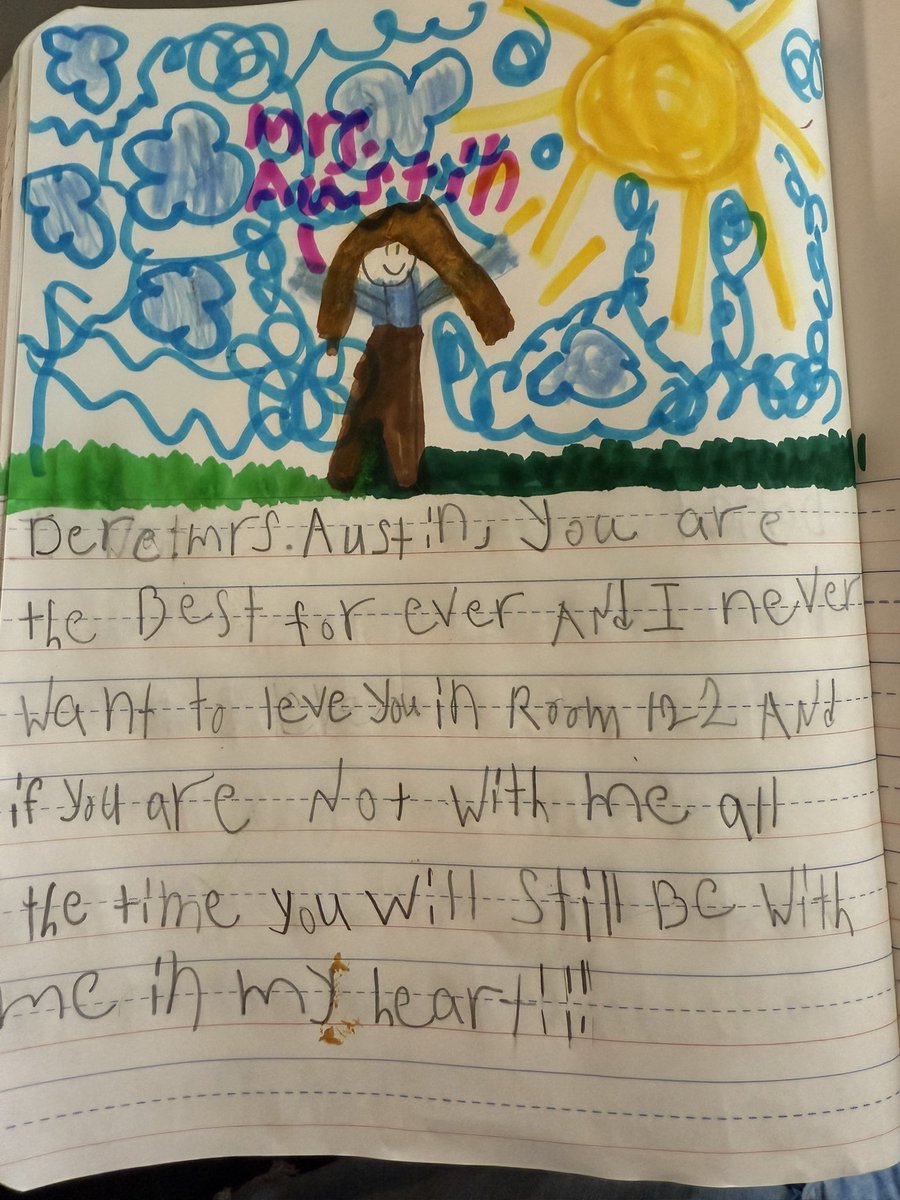 Mrs.
Austin
Deretmrs. Austin, you are
the Best for ever AND I never
want to leve you in Room 122 AND
if you are Not with me all
the time you will Still BE with
me in my heart!!!!